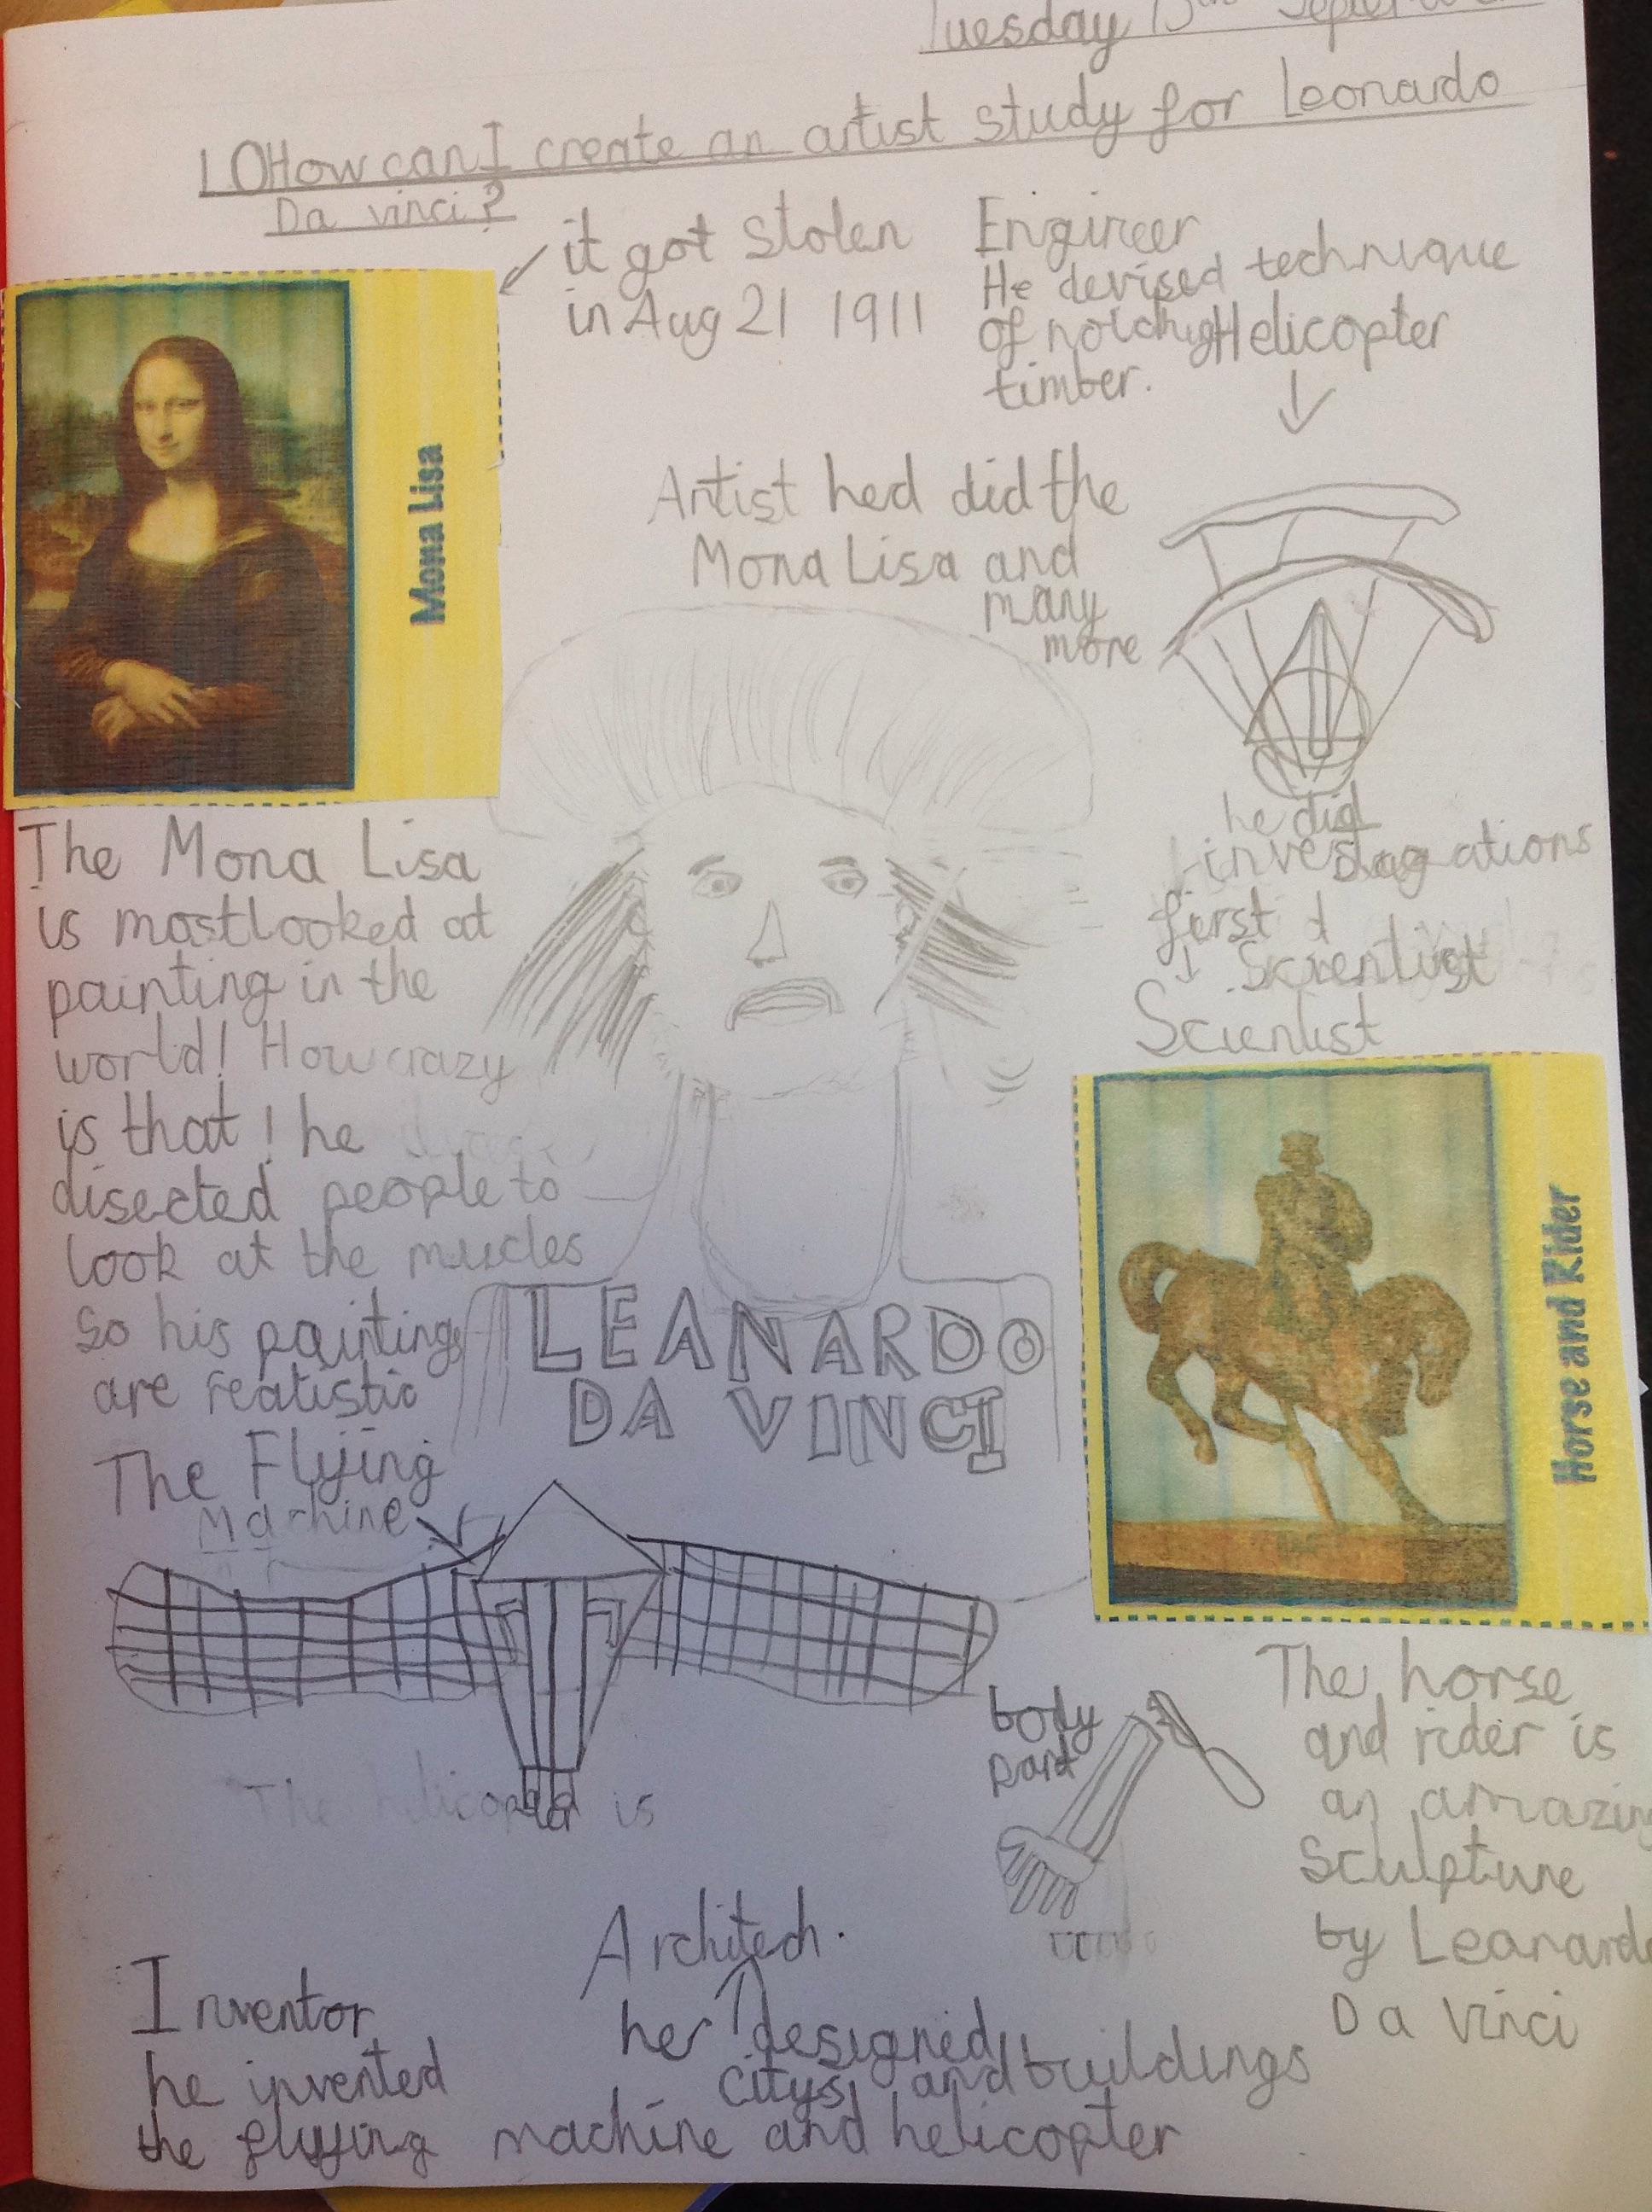 Tuesday 15th September
LO How can I create an artist study for Leonardo
Da vinci?
it got stolen
in Aug 21 1911
Engineer
He devised technique
of notchig
timber.
Helicopter
Mona Lisa
Artist hed did the
Mona Lisa and
many
more
The Mona Lisa
is most looked at
painting in the
world! How crazy
is that! he
disected people to
look at the mucles
so his paintings
are realistic
he did
first
Scientist
Scientist
LEANARDO
DA VINCI
Horse and Rider
The Flying
Machine
The helicopter is
body
part
The horse
and rider is
an amazing
Sculpture
by Leanardo
Da Vinci
Architech.
he designed
citys and buildings
Inventor
he invented
the flyying machine and helicopter